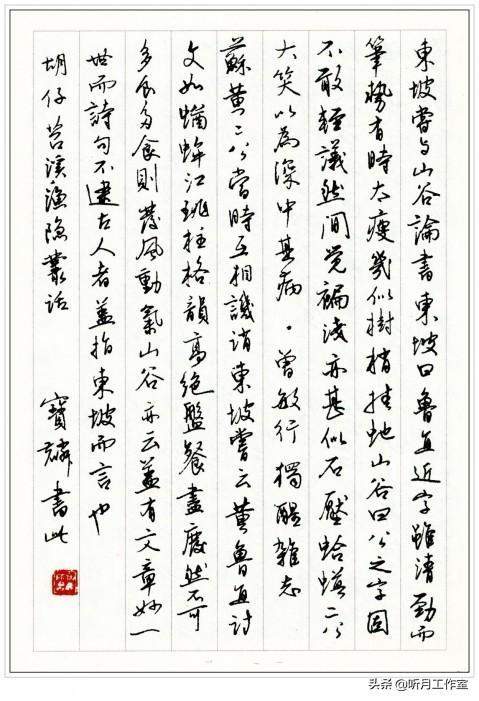 東坡嘗與山谷論書東坡曰魯直近字雖清勁而
筆勢有時太瘦幾似樹梢挂虵山谷曰公之字固
不敢輕議然間覺褊淺亦甚似石壓蛤蟆二公
大笑以為深中其病。曾敏行 獨醒雜志
蘇黄二公當時互相譏誚東坡嘗云黄魯直詩
文如蝤蛑江珧柱格韻高絶盤餐盡廢然不可
多食多食則發風動氣山谷亦云蓋有文章妙一
世而詩句不逮古人者蓋指東坡而言也
胡仔苕溪漁隐叢話 寶麟書此
头条 @听月工作室